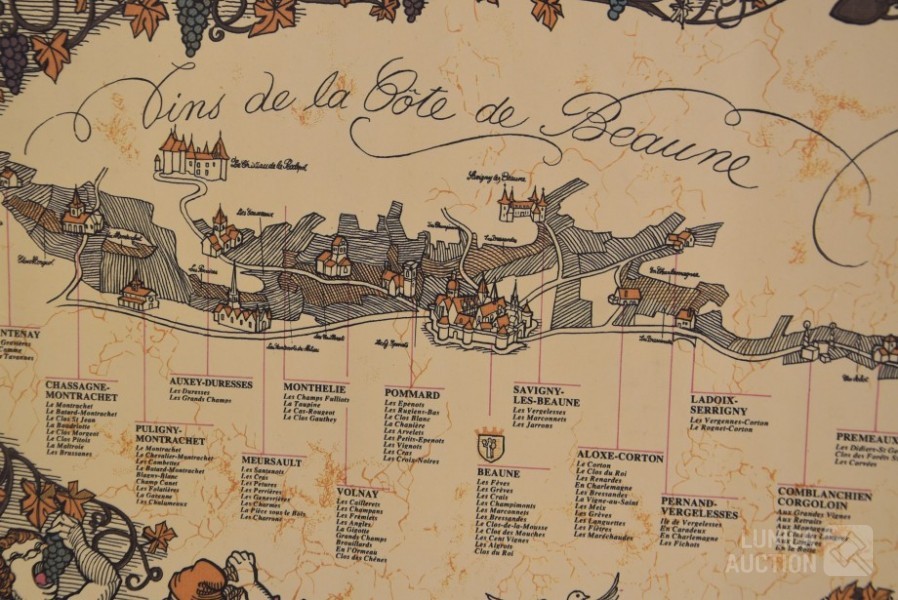 Vins de la Côte de Beaune
Savigny les Beaune
NTENAY
CHASSAGNE-
MONTRACHET
Le Montrachet
Le Batard-Montrachet
Le Clos St Jean
La Boudriotte
Le Clos Morgeot
Le Clos Pitois
La Maltroie
Les Brussanes
PULIGNY-
MONTRACHET
Le Montrachet
Le Chevalier-Montrachet
Les Combettes
Le Batard-Montrachet
Blagny-Blanc
Champ Canet
Les Volatières
La Garenne
Les Chalumeaux
AUXEY-DURESSES
Les Duresses
Les Grands Champs
MEURSAULT
Les Santenots
Les Cras
Les Petures
Les Perrières
Les Genevrières
Les Charmes
La Pièce sous le Bois
Les Charrons
MONTHELIE
Les Champs Fulliots
La Taupine
Le Cas-Rougeot
Le Clos Gauthey
VOLNAY
Les Caillerets
Les Champans
Les Fremiets
Les Angles
La Gigotte
Grands Champs
Brouillards
En l'Ormeau
Clos des Chênes
POMMARD
Les Epenots
Les Rugiens-Bas
Le Clos Blanc
La Chanière
Les Arvelets
Les Petits-Epenots
Les Vignots
Les Cras
Les Croix-Noires
BEAUNE
Les Fèves
Les Grèves
Les Crais
Les Champimonts
Les Marconnets
Les Bressandes
Le Clos-de-la-Mousse
Le Clos des Mouches
Les Cent Vignes
Les Aigrots
Clos du Roi
SAVIGNY-
LES-BEAUNE
Les Vergelesses
Les Marconnets
Les Jarrons
ALOXE-CORTON
Le Corton
Le Clos du Roi
Les Renardes
En Charlemagne
Les Bressandes
La Vigne-au-Saint
Les Meix
Les Grèves
Les Languettes
Les Pougets
Les Maréchaudes
PERNAND-
VERGELESSES
Ile de Vergelesses
En Caradeux
En Charlemagne
Les Fichots
LADOIX-
SERRIGNY
Les Vergennes-Corton
Le Rognet-Corton
COMBLANCHIEN
CORGOLOIN
Aux Grandes Vignes
Aux Retraits
Aux Montagnes
Le Clos des Langres
PREMEAUX
Les Didiers-St Ge
Clos des Forêts S
Les Corvées
AUCTION